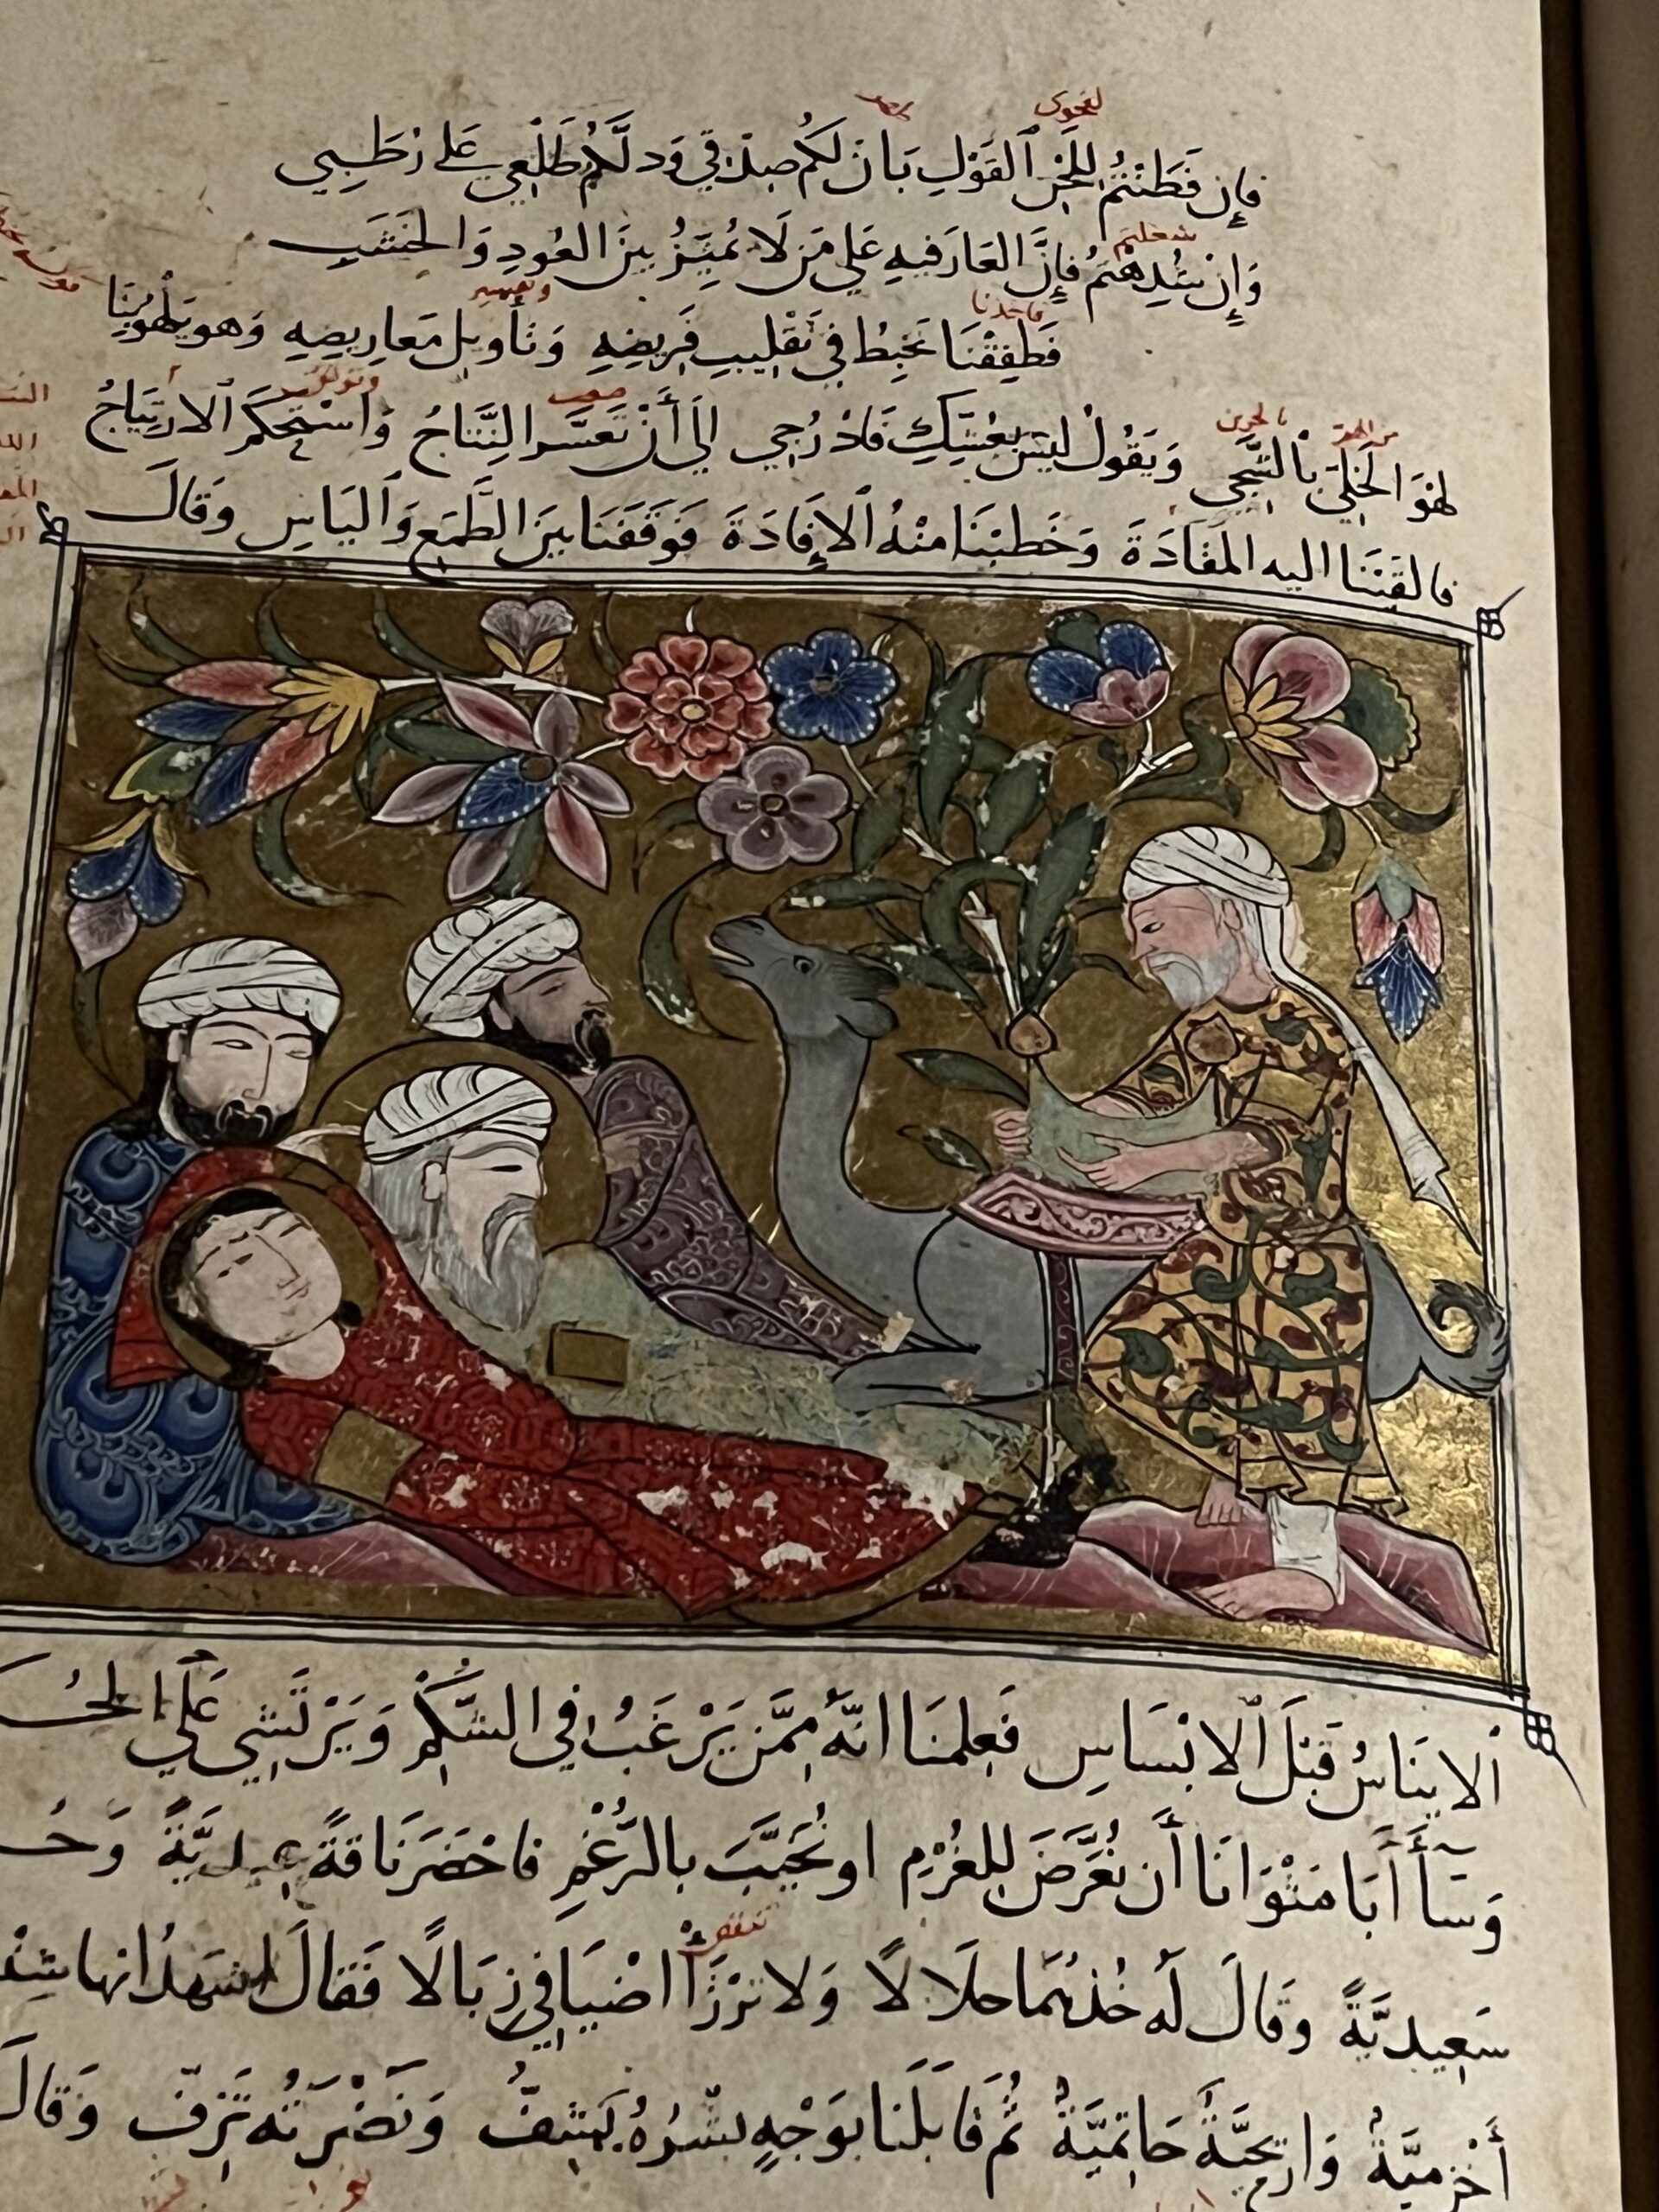 لفحوى
فإن فَطَنْتُمْ لِلَحْنِ ٱلقَوْلِ بَانَ لَكُم صِدْقِي وَدلَّكُمْ طَلْعِي عَلى رُطَبِي
شغلتم
وَإِنْ شُدِهْتُمْ فَإِنَّ العَارَ فيهِ عَلي مَن لَا يُمَيِّزُ بينَ العُودِ وَالخَشَبِ
فاخذنا وتفسير
فَطَفِقْنَا نَخْبِطُ في تَقْلِيبِ قَرِيضِهِ وَتَأويلِ مَعَارِيضِهِ وَهو يَلْهُو بِنَا
صعب
لهْوَ الخَلِيِّ بالشَّجِي وَيَقُولُ ليسَ بعُشِّكِ فَادْرُجِي الي أَنْ تَعَسَّر النِّتَاجُ وَاسْتَحكَمَ ٱلارْتِيَاجُ
فالقَيْنَا اليه المَقَادَةَ وَخَطَبْنَا منْهُ ٱلإِفَادَةَ فَوقَفَنَا بينَ الطَّمَعِ وَٱليَاسِ وَقَالَ
ٱلاينَاسُ قَبْلَ ٱلابْسَاسِ فَعلِمنَا انّهُ مِمَّن يَرْغَبُ في الشُّكْمِ وَيَرْتَشِي عَلَي
وَسَآءَ أَبَا مَثْوَانَا أَن نُعَرَّضَ لِلغُرْمِ او نُخَيَّبَ بالرُّغْمِ فاحْضَر نَاقةً عِيديَّةً وَحُ
تنقص
سَعِيديَّةً وقَالَ لَه خُذهُمَا حلَالًا وَلا تَرْزَأْ اضْيَافِي زِبَالًا فَقَالَ اشهَدُ انها شِنْ
أَخْزميَّةٌ وَاريحيَّةٌ حَاتميَّةٌ ثُم قَابلَنَا بوَجْهٍ بِشرُهُ يَشِفُّ وَنَضْرَتُه تَرِفّ وَقَالَ